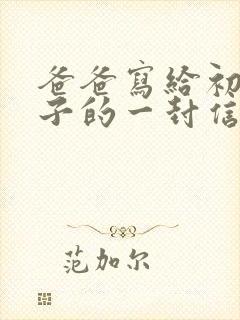 爸爸寫給初
子的一封信
范加尔